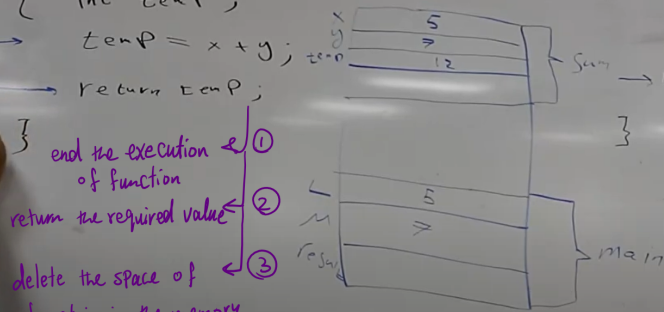 { int temp;
temp = x + y;
return temp;
}
① end the execution
of function
② return the required value
③ delete the space of
function in the memory
x 5
y 7
temp 12
Sum
}
L 5
M 7
result
main